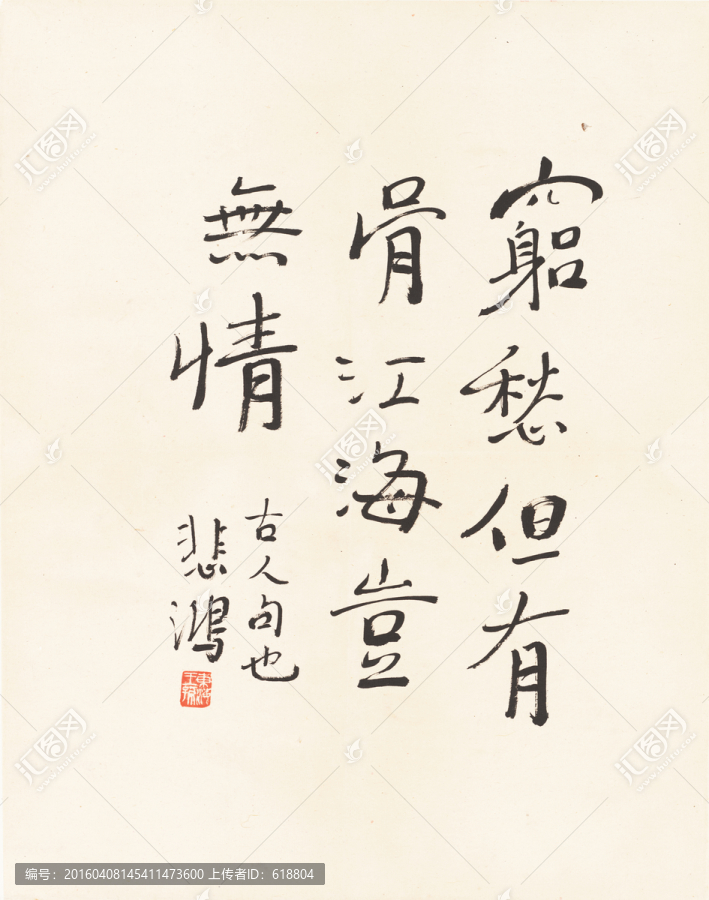 窮愁但有
骨江海豈
無情
古人句也
悲鴻
汇图网
www.huitu.com
编号：20160408145411473600 上传者ID：618804